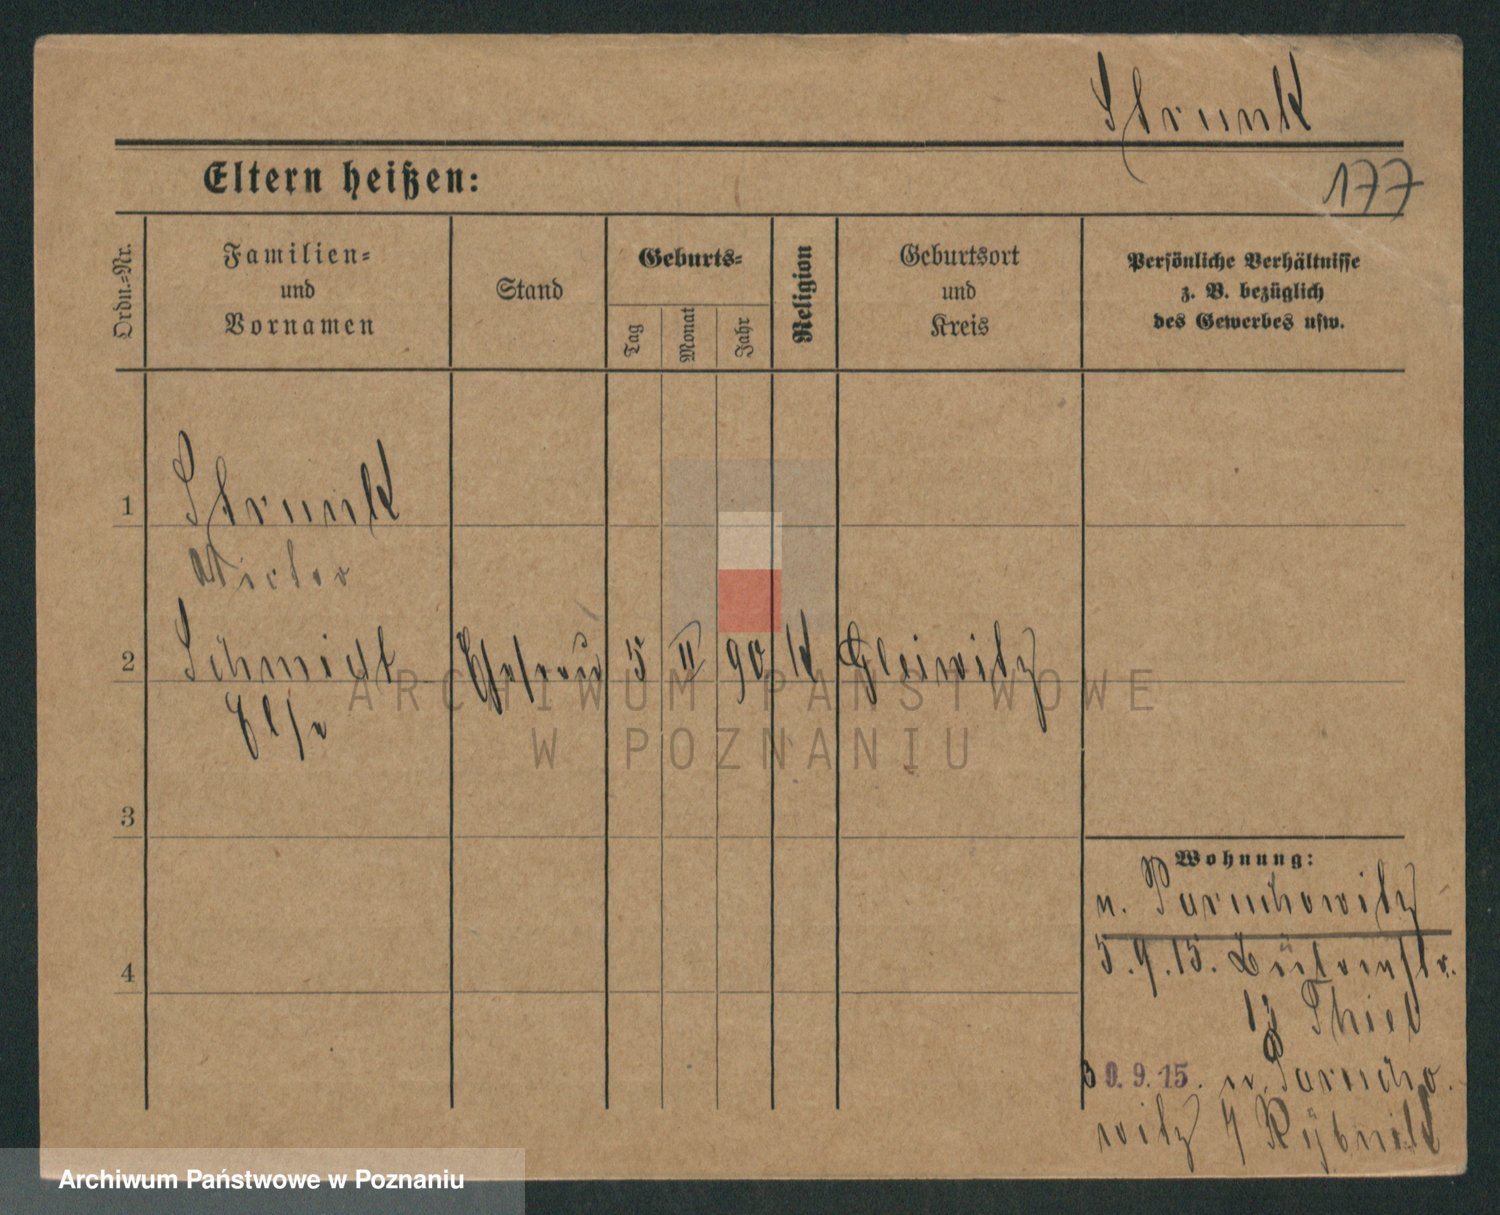 Strunk
Eltern heißen:
177
Ordn.-Nr.
Familien-
und
Vornamen
Stand
Geburts-
Tag
Monat
Jahr
Religion
Geburtsort
und
Kreis
Persönliche Verhältnisse
z. B. bezüglich
des Gewerbes usw.
1
Strunk
Victor
2
Schmidt Ehefrau 5 II 90 K Gleiwitz
Else
ARCHIWUM PAŃSTWOWE
W POZNANIU
3
Wohnung:
n. Paruschowitz
4
5.9.15.
Thiel
30.9.15. n. Parucho
witz / Rybnik
Archiwum Państwowe w Poznaniu